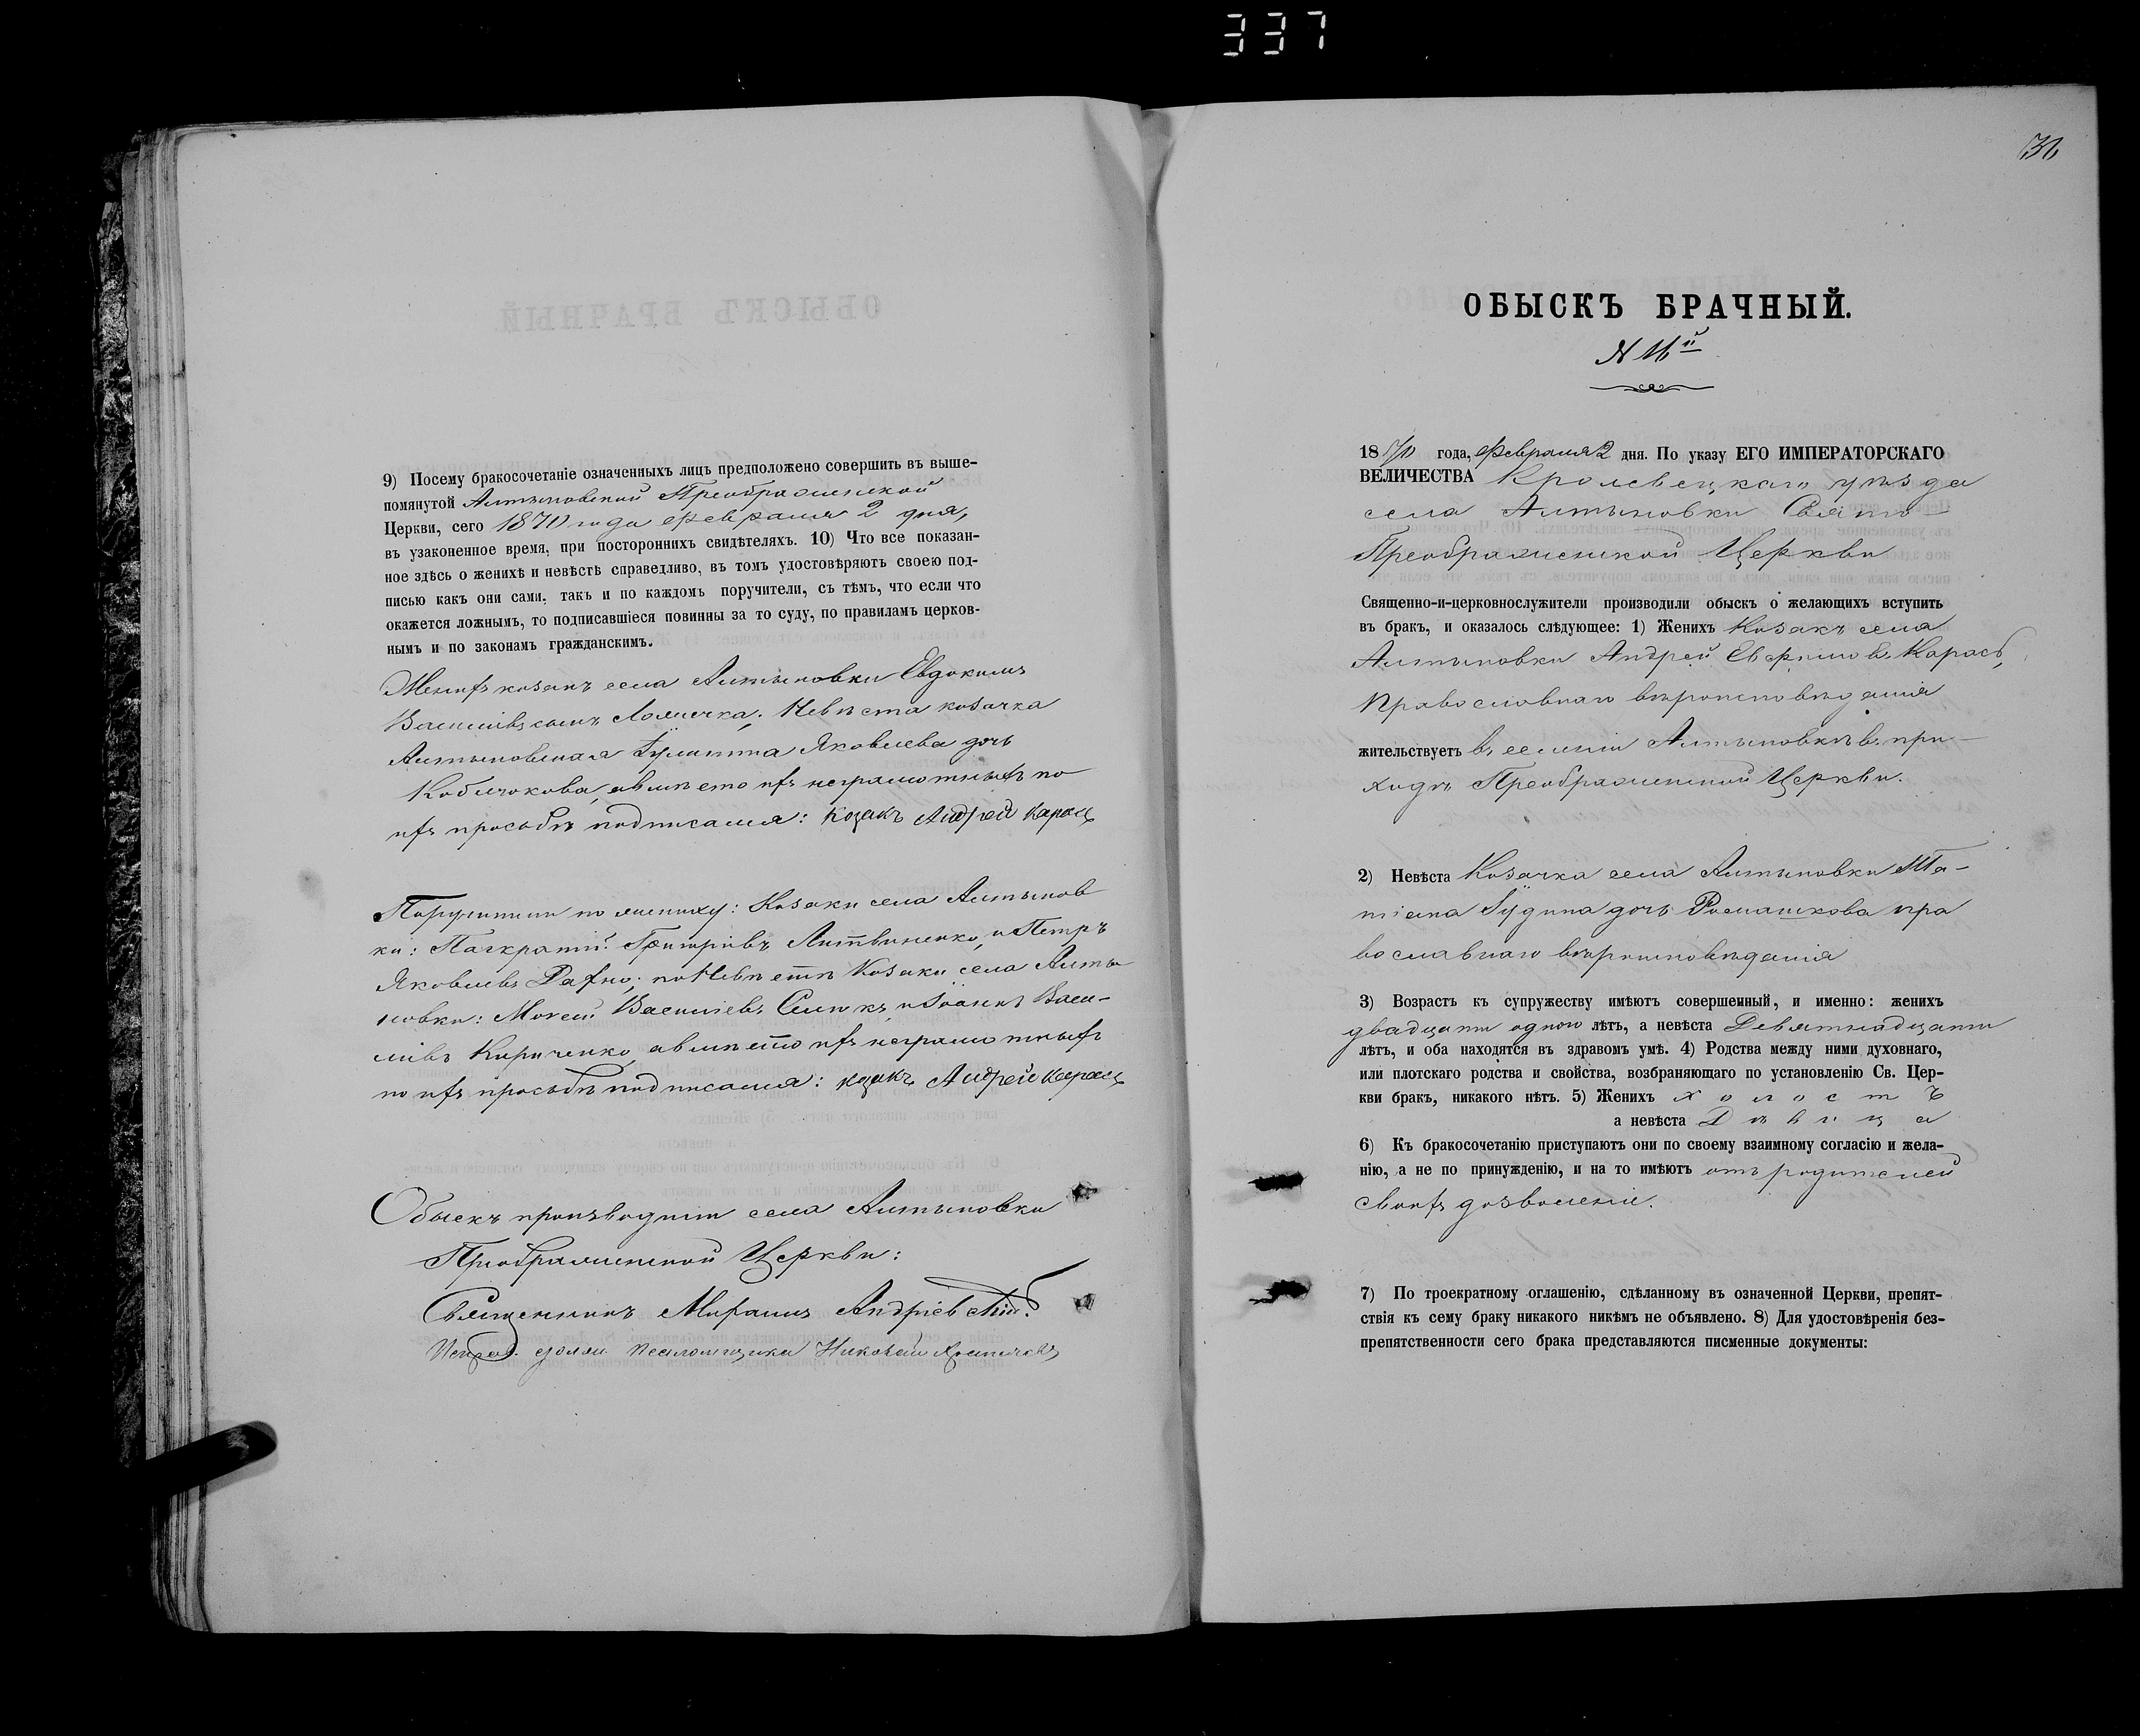 337
9) Посему бракосочетаніе означенныхъ лицъ предположено совершить въ выше-
помянутой Алтыновской Преображенской
Церкви, сего 1870 года февраля 2 дня,
въ узаконенное время, при постороннихъ свидѣтеляхъ. 10) Что все показан-
ное здѣсь о женихѣ и невѣстѣ справедливо, въ томъ удостовѣряютъ своею под-
писью какъ они сами, такъ и по каждомъ поручители, съ тѣмъ, что если что
окажется ложнымъ, то подписавшіеся повинны за то суду, по правиламъ церков-
нымъ и по законамъ гражданскимъ.
Женихъ козакъ села Алтыновки Евдокимъ
Василіевъ сынъ; Невѣста козачка
Алтыновская Іулитта Яковлева дочь
а вмѣсто ихъ неграмотныхъ по
ихъ просьбѣ подписался: козакъ Андрей Карась
Поручители по жениху: Козаки села Алтынов
ки: Панкратій Григоріевъ Литвиненко, и Петръ
Яковлевъ Рахно; по Невѣстѣ Козаки села Алты
новки: Мосей Василіевъ и Іоаннъ Васи-
ліевъ Кириченко, а вмѣсто ихъ неграмотныхъ
по ихъ просьбѣ подписался: козакъ Андрей Карась
Обыскъ производили села Алтыновки
Преображенской Церкви:
Священникъ Михаилъ Андріевскій
Исправ. должн. Псаломщика Николай
ОБЫСКЪ БРАЧНЫЙ.
1870 года, февраля 2 дня. По указу ЕГО ИМПЕРАТОРСКАГО
ВЕЛИЧЕСТВА Кролевецкаго уѣзда
села Алтыновки Свято-
Преображенской Церкви
Священно-и-церковнослужители производили обыскъ о желающихъ вступить
въ брак, и оказалось слѣдующее: 1) Женихъ Козакъ села
Алтыновки Андрей Евфимовъ Карась,
Православнаго вѣроисповѣданія
жительствуетъ въ селеніи Алтыновкѣ въ при-
ходѣ Преображенской Церкви.
2) Невѣста Козачка села Алтыновки Та-
тіана Іудина дочь Ромашкова пра
вославнаго вѣроисповѣданія
3) Возрастъ къ супружеству имѣютъ совершенный, и именно: женихъ
двадцати одного лѣтъ, а невѣста Девятнадцати
лѣтъ, и оба находятся въ здравомъ умѣ. 4) Родства между ними духовнаго,
или плотскаго родства и свойства, возбраняющаго по установленію Св. Цер-
кви бракъ, никакого нѣтъ. 5) Женихъ холостъ
а невѣста Дѣвица
6) Къ бракосочетанію приступаютъ они по своему взаимному согласію и жела-
нію, а не по принужденію, и на то имѣютъ отъ родителей
своихъ дозволеніе.
7) По троекратному оглашенію, сдѣланному въ означенной Церкви, препят-
ствія къ сему браку никакого никѣмъ не объявлено. 8) Для удостовѣренія без-
препятственности сего брака представляются писменные документы: